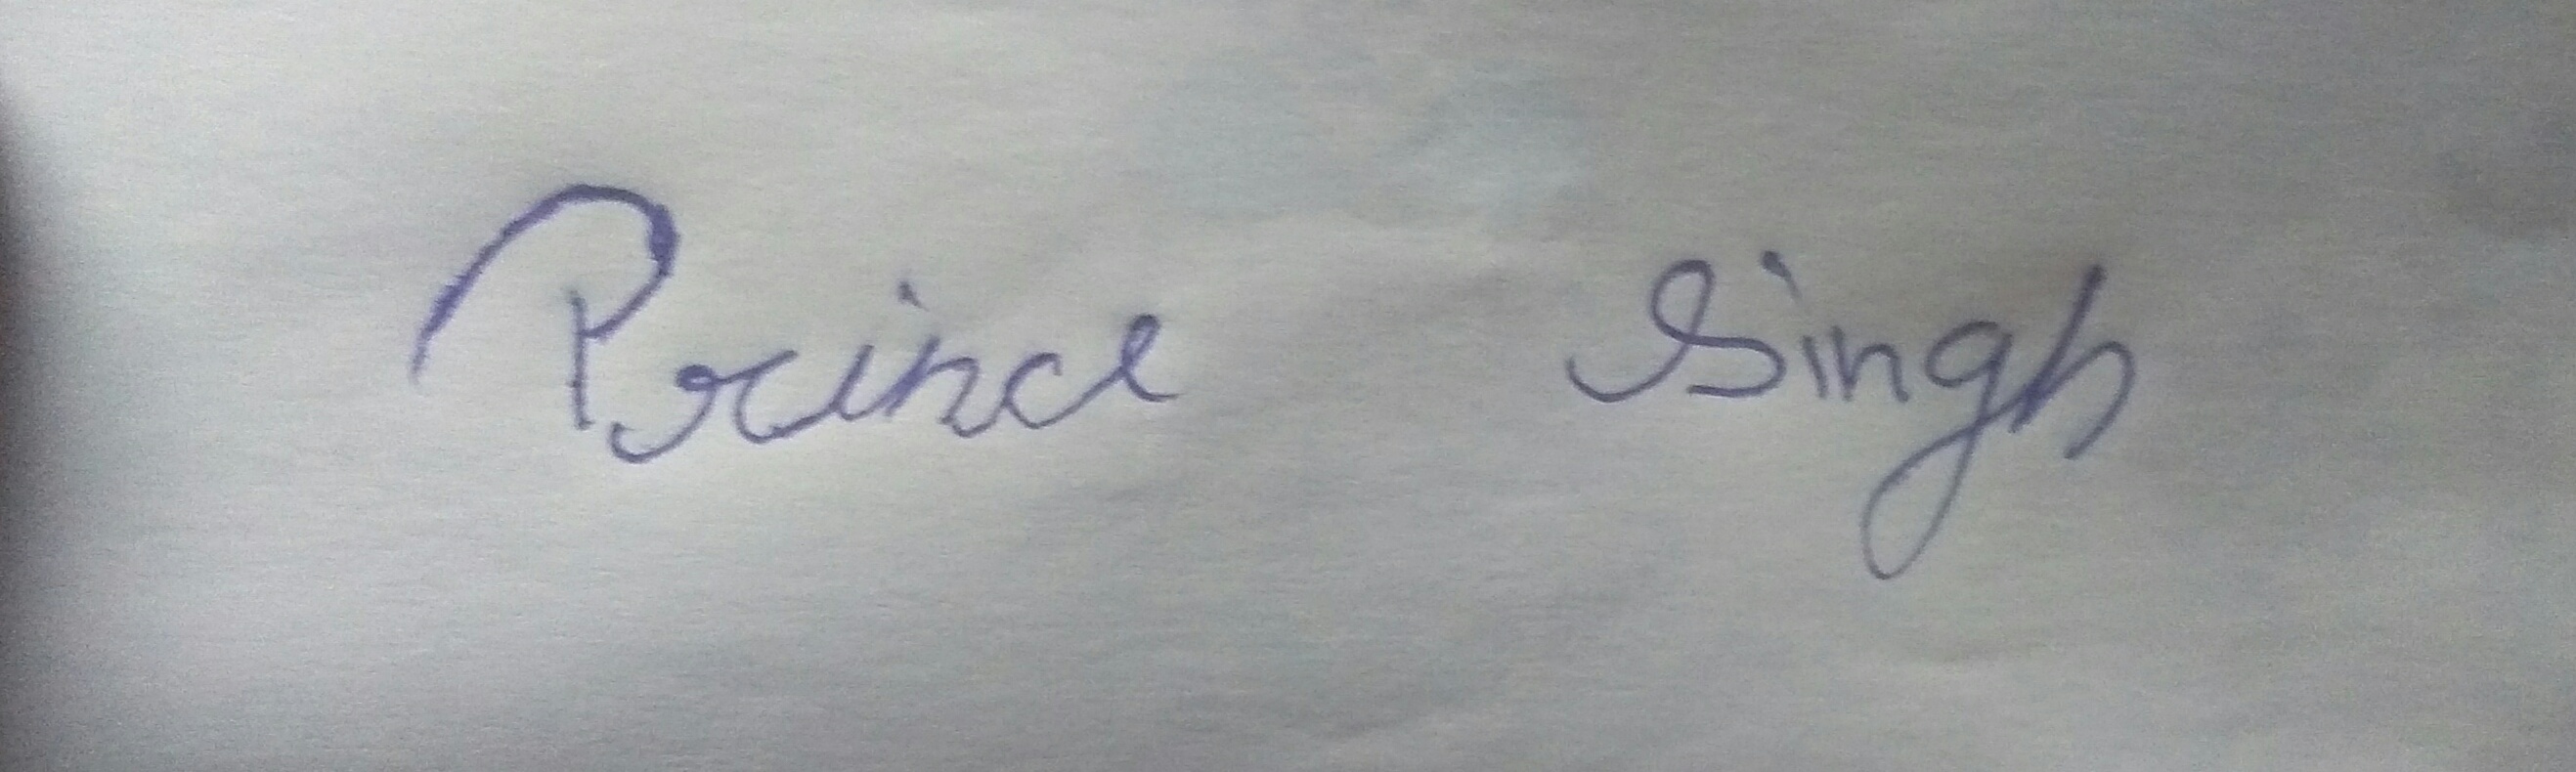 Prince Singh